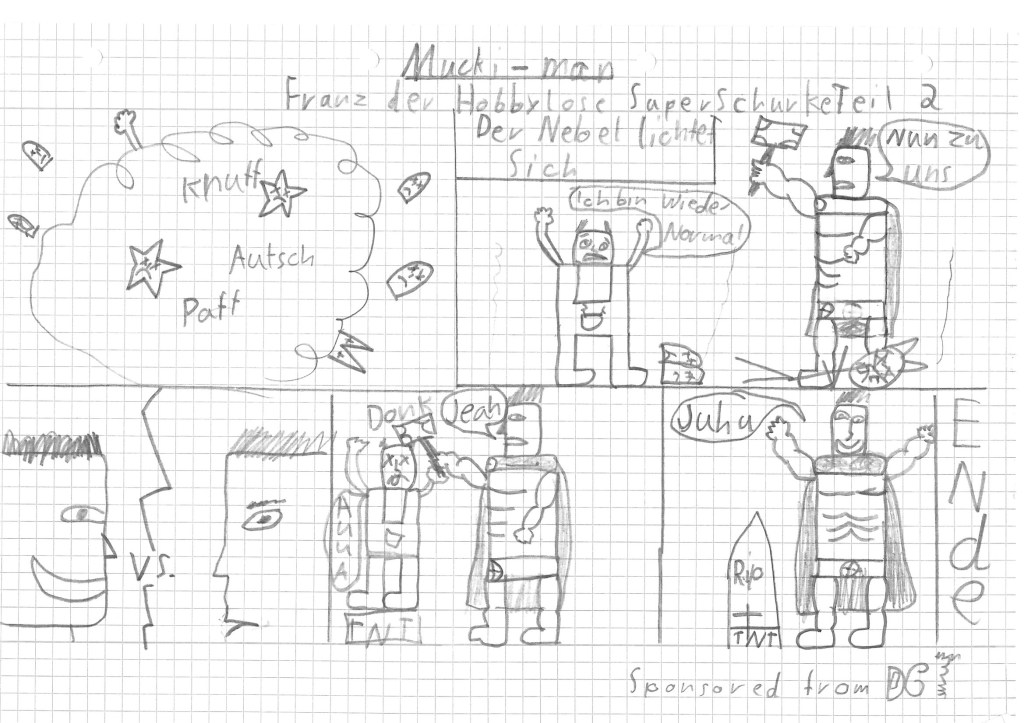 Mucki-man
Franz der Hobbylose Superschurke Teil 2
Knuff
Autsch
Paff
Der Nebel lichtet
Sich
Ich bin wieder
Normal
Nun zu
uns
Vs.
Donk
Jeah
AUUA
TNT
Juhu
Rip
TNT
ENde
Sponsored from DC